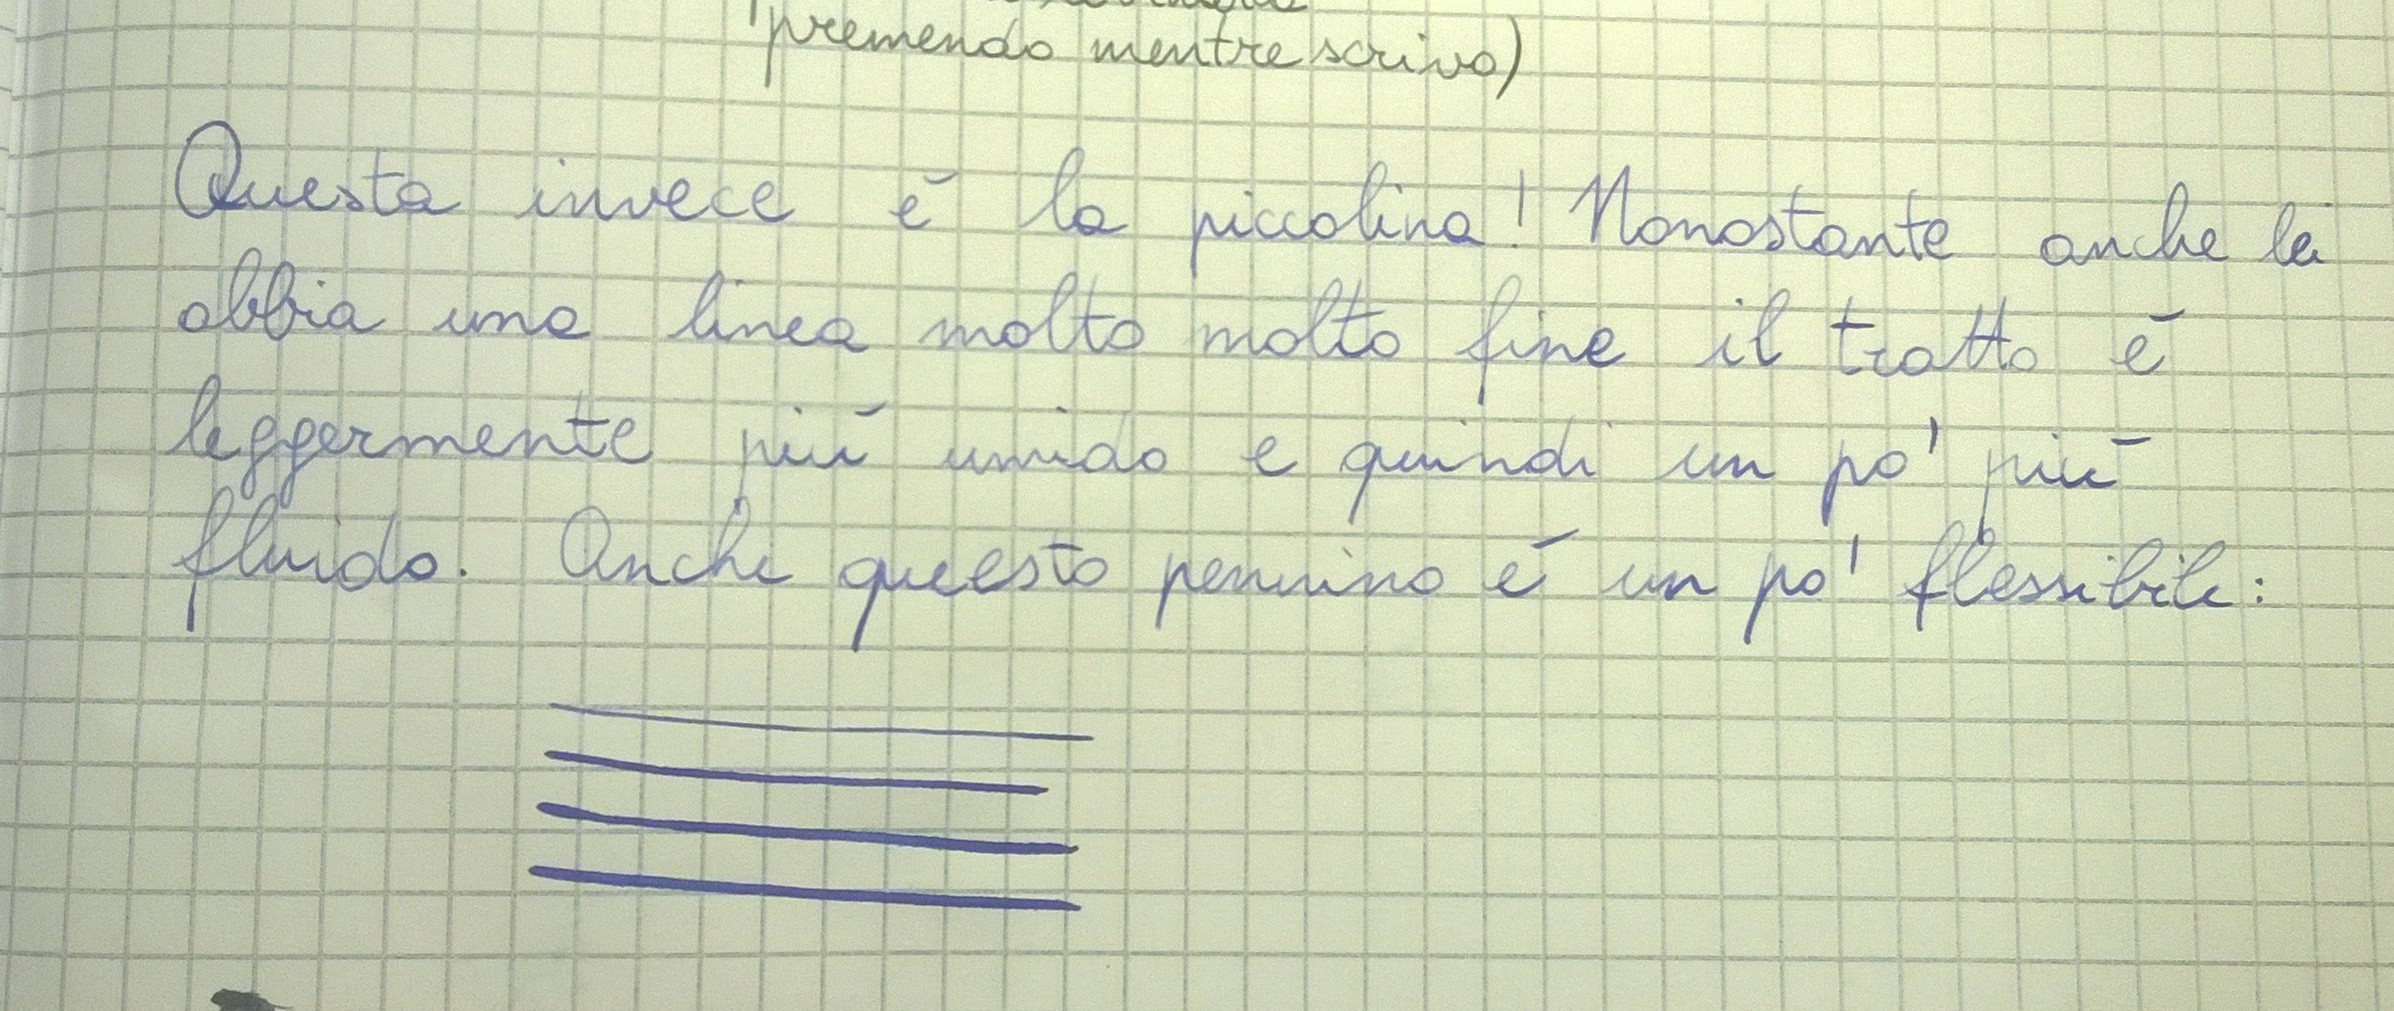 premendo mentre scrivo)
Questa invece è la piccolina! Nonostante anche lei
abbia una linea molto molto fine il tratto è
leggermente più umido e quindi un po' più
fluido. Anche questo pennino è un po' flessibile: